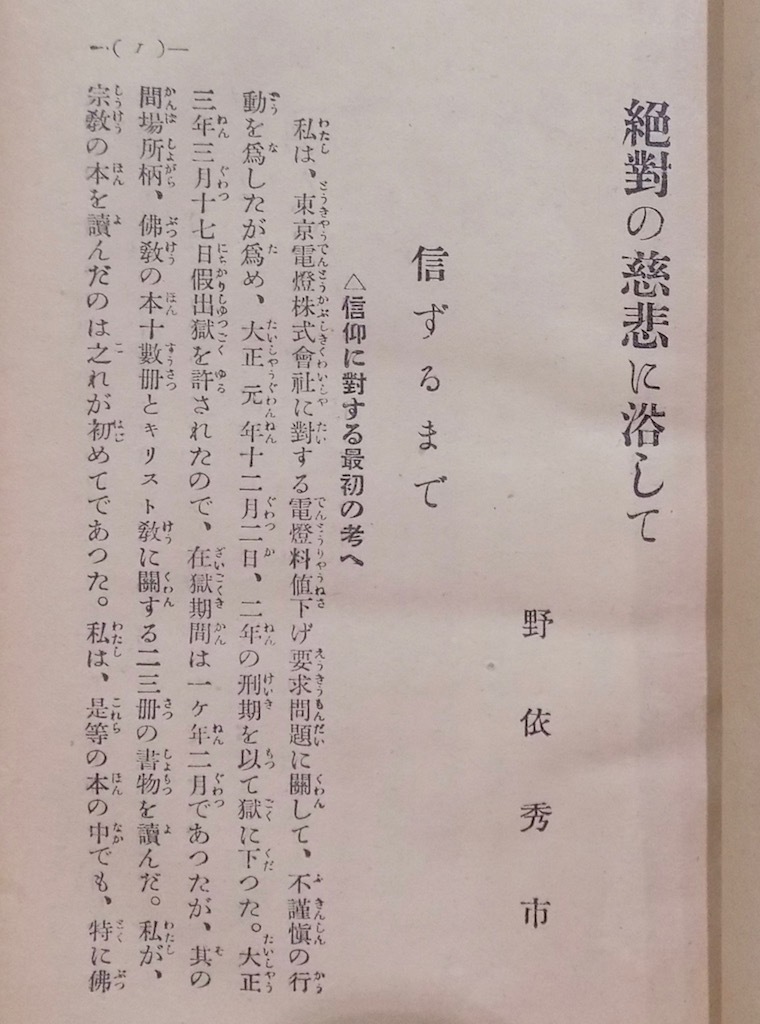 —(1)—
絕對の慈悲に浴して
野依秀市
信ずるまで
△信仰に對する最初の考へ
私は、東京電燈株式會社に對する電燈料値下げ要求問題に關して、不謹愼の行
動を爲したが爲め、大正元年十二月二日、二年の刑期を以て獄に下つた。大正
三年三月十七日假出獄を許されたので、在獄期間は一ケ年二月であつたが、其の
間場所柄、佛敎の本十數册とキリスト敎に關する二三册の書物を讀んだ。私が、
宗敎の本を讀んだのは之れが初めてであつた。私は、是等の本の中でも、特に佛